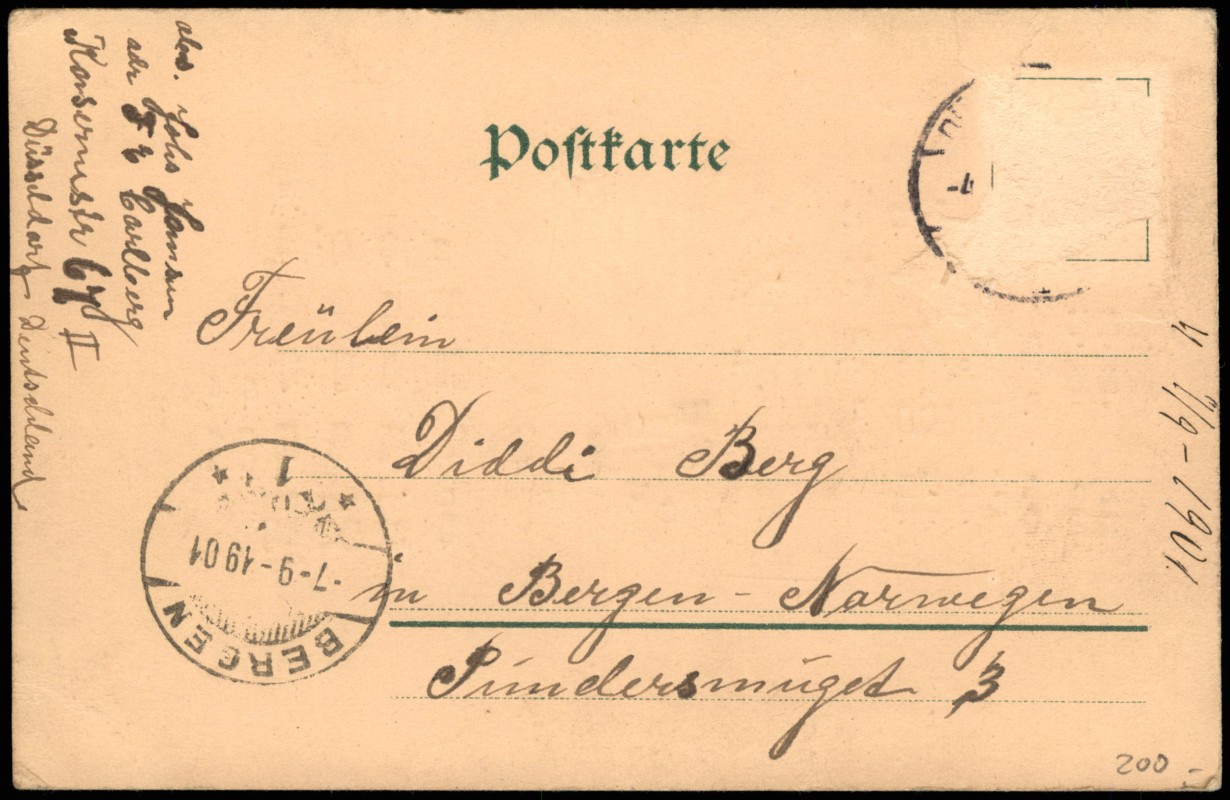 Postkarte
abs. Johs Jansen
adr F E Carlberg
67 II
Düsseldorf Deutschland
Fräulein
Diddi Berg
in Bergen - Norwegen
3
4/9-1901
BERGEN
-7-9-1901
1
200